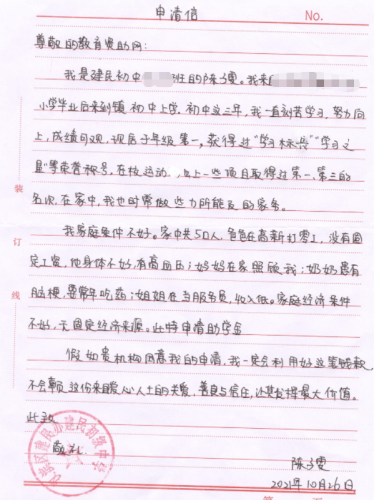 申请信
No.
尊敬的教育资助网:
我是建民初中 班的陈子雯。我来
小学毕业后来到镇初中上学,初中这三年,我一直刻苦学习,努力向
上,成绩可观,现居于年级第一,获得过“学习标兵”“学习之
星”等荣誉称号,在校运动 上一些项目取得过第一、第三的
名次,在家中,我也时常做些力所能及的家务。
我家庭条件不好。家中共5口人,爸爸在高新打零工,没有固
定工资,他身体不好,有高血压;妈妈在家照顾我;奶奶患有
脑梗,要常年吃药;姐姐在当服务员,收入低。家庭经济条件
不好,无固定经济来源。此特申请助学金
假如贵机构同意我的申请,我一定会利用好这笔钱款,
不会辜负这份来自爱心人士的关爱,善良与信任,让其发挥最大价值。
此致
敬礼
陈子雯
2021年10月26日
装
订
线
区建民办建民初级中学